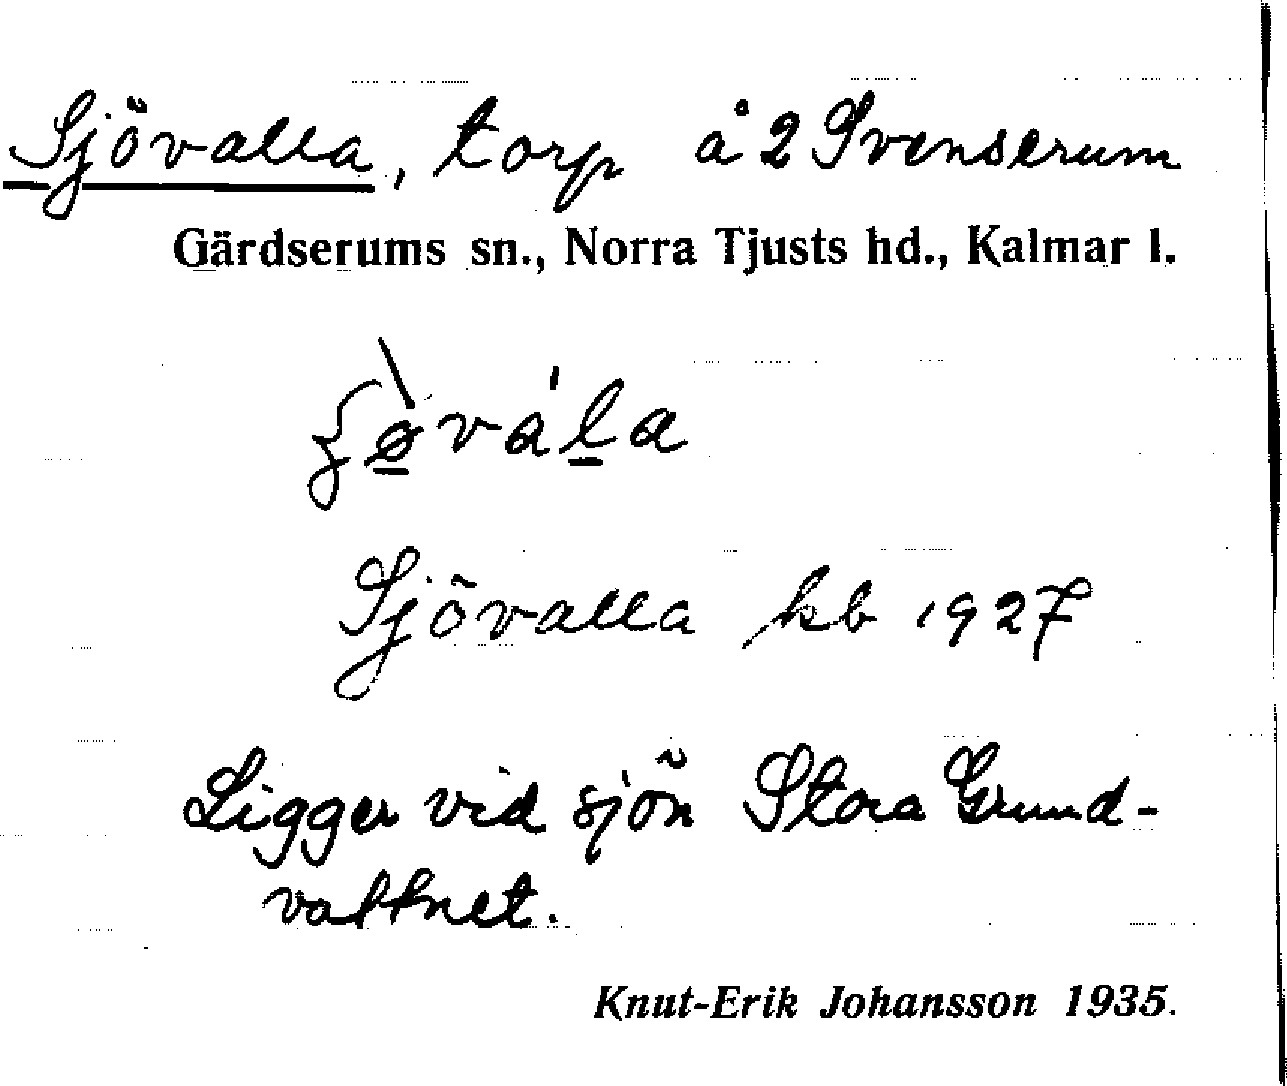 Sjövalla, torp å 2 Svenserum
Gärdserums sn., Norra Tjusts hd., Kalmar l.
Sjövalla kb 1927
Ligger vid sjön Stora Grund-
vattnet.
Knut-Erik Johansson 1935.